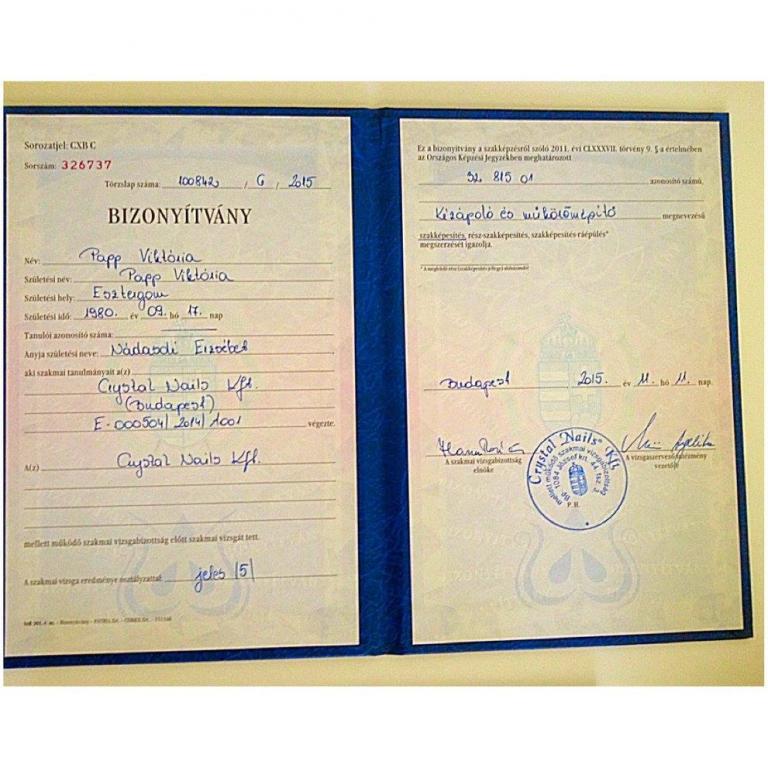 Sorozatjel: CXB C
Sorszám: 326737
Törzslap száma: 100842 / 6 / 2015
BIZONYÍTVÁNY
Név: Papp Viktória
Születési név: Papp Viktória
Születési hely: Esztergom
Születési idő: 1980. év 09. hó 17. nap
Tanulói azonosító száma:
Anyja születési neve: Nádasdi Erzsébet
aki szakmai tanulmányait a(z)
Crystal Nails Kft.
(Budapest)
E-000504/2014/1001 végezte.
A(z) Crystal Nails Kft.
mellett működő szakmai vizsgabizottság előtt szakmai vizsgát tett.
A szakmai vizsga eredménye osztályzattal: jeles /5/
Ez a bizonyítvány a szakképzésről szóló 2011. évi CLXXXVII. törvény 9. § a értelmében
az Országos Képzési Jegyzékben meghatározott
52 815 01 azonosító számú,
Kézápoló és műkörömépítő megnevezésű
szakképesítés, rész-szakképesítés, szakképesítés-ráépülés*
megszerzését igazolja.
Budapest 2015. év 11. hó 11. nap.
A szakmai vizsgabizottság
elnöke
A vizsgaszervező intézmény
vezetője
Crystal Nails Kft.
mellett működő szakmai vizsgabizottság
Bp. 1084 József krt. 44.
P.H.